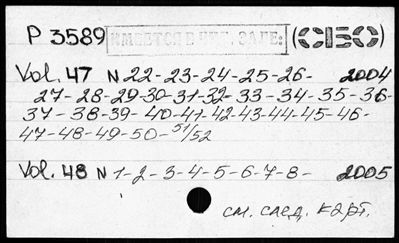 P 3589 ИМЕЕТСЯ В ЧИТ. ЗАЛЕ: (СБО)
Vol. 47 N 22-23-24-25-26- 2004
27-28-29-30-31-32-33-34-35-36-
37-38-39-40-41-42-43-44-45-46-
47-48-49-50-51/52
Vol. 48 N 1-2-3-4-5-6-7-8- 2005
см. след. карт.